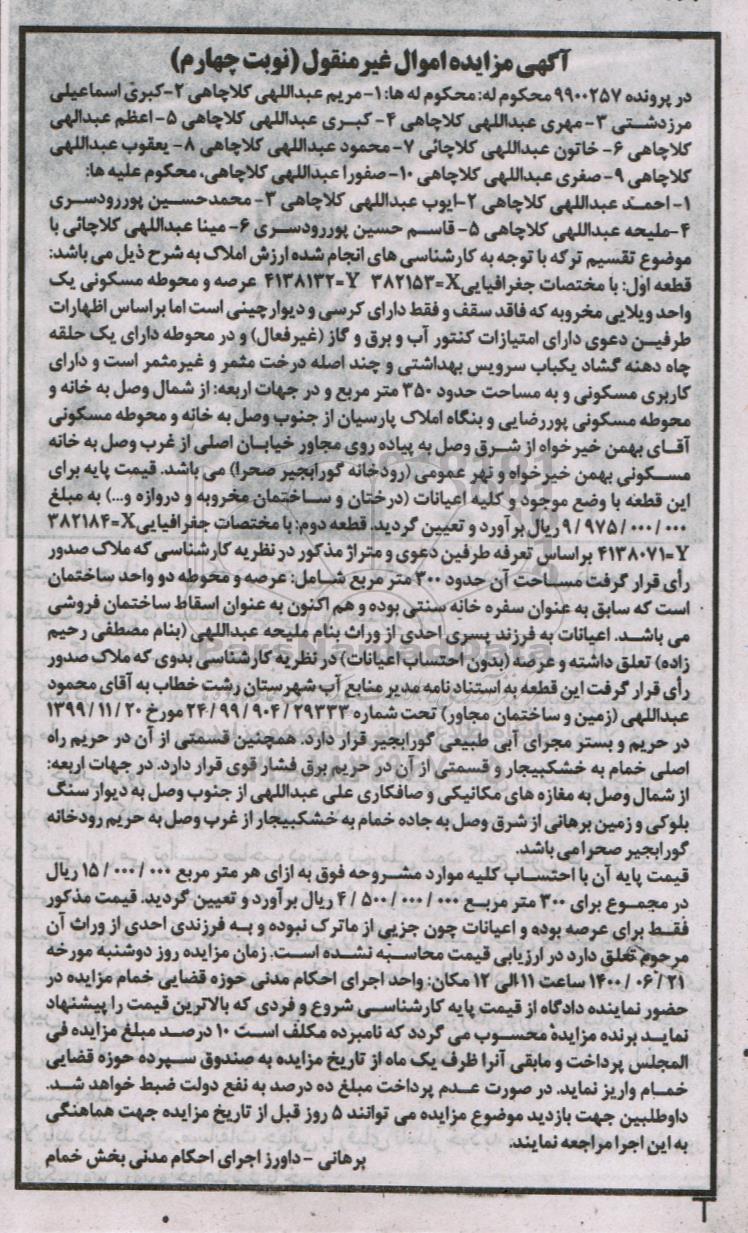 آگهی مزایده اموال غیر منقول (نوبت چهارم)
در پرونده ۹۹۰۰۲۵۷ محکوم له: محکوم له ها: ۱- مریم عبداللهی کلاچاهی ۲- کبری اسماعیلی
مرزدشتی ۳- مهری عبداللهی کلاچاهی ۴- کبری عبداللهی کلاچاهی ۵- اعظم عبدالهی
کلاچاهی ۶- خاتون عبداللهی کلاچائی ۷- محمود عبداللهی کلاچاهی ۸- یعقوب عبداللهی
کلاچاهی ۹- صفری عبداللهی کلاچاهی ۱۰- صفورا عبداللهی کلاچاهی، محکوم علیه ها:
۱- احمد عبداللهی کلاچاهی ۲- ایوب عبداللهی کلاچاهی ۳- محمدحسین پوررودسری
۴- ملیحه عبداللهی کلاچاهی ۵- قاسم حسین پوررودسری ۶- مینا عبداللهی کلاچائی با
موضوع تقسیم ترکه با توجه به کارشناسی های انجام شده ارزش املاک به شرح ذیل می باشد:
قطعه اول: با مختصات جغرافیایی X=۳۸۲۱۵۳ Y=۴۱۳۸۱۳۲ عرصه و محوطه مسکونی یک
واحد ویلایی مخروبه که فاقد سقف و فقط دارای کرسی و دیوارچینی است اما براساس اظهارات
طرفین دعوی دارای امتیازات کنتور آب و برق و گاز (غیرفعال) و در محوطه دارای یک حلقه
چاه دهنه گشاد یکباب سرویس بهداشتی و چند اصله درخت مثمر و غیرمثمر است و دارای
کاربری مسکونی و به مساحت حدود ۳۵۰ متر مربع و در جهات اربعه: از شمال وصل به خانه و
محوطه مسکونی پوررضایی و بنگاه املاک پارسیان از جنوب وصل به خانه و محوطه مسکونی
آقای بهمن خیرخواه از شرق وصل به پیاده روی مجاور خیابان اصلی از غرب وصل به خانه
مسکونی بهمن خیرخواه و نهر عمومی (رودخانه گورابجیر صحرا) می باشد. قیمت پایه برای
این قطعه با وضع موجود و کلیه اعیانات (درختان و ساختمان مخروبه و دروازه و...) به مبلغ
۹/۹۷۵/۰۰۰/۰۰۰ ریال برآورد و تعیین گردید. قطعه دوم: با مختصات جغرافیایی X=۳۸۲۱۸۴
Y=۴۱۳۸۰۷۱ براساس تعرفه طرفین دعوی و متراژ مذکور در نظریه کارشناسی که ملاک صدور
رأی قرار گرفت مساحت آن حدود ۳۰۰ متر مربع شامل: عرصه و محوطه دو واحد ساختمان
است که سابق به عنوان سفره خانه سنتی بوده و هم اکنون به عنوان اسقاط ساختمان فروشی
می باشد. اعیانات به فرزند پسری احدی از وراث بنام ملیحه عبداللهی (بنام مصطفی رحیم
زاده) تعلق داشته و عرصه (بدون احتساب اعیانات) در نظریه کارشناسی بدوی که ملاک صدور
رأی قرار گرفت این قطعه به استناد نامه مدیر منابع آب شهرستان رشت خطاب به آقای محمود
عبداللهی (زمین و ساختمان مجاور) تحت شماره ۲۴/۹۹/۹۰۴/۲۹۳۳۳ مورخ ۱۳۹۹/۱۱/۲۰
در حریم و بستر مجرای آبی طبیعی گورابجیر قرار دارد. همچنین قسمتی از آن در حریم راه
اصلی خمام به خشکبیجار و قسمتی از آن در حریم برق فشار قوی قرار دارد. در جهات اربعه:
از شمال وصل به مغازه های مکانیکی و صافکاری علی عبداللهی از جنوب وصل به دیوار سنگ
بلوکی و زمین برهانی از شرق وصل به جاده خمام به خشکبیجار از غرب وصل به حریم رودخانه
گورابجیر صحرا می باشد.
قیمت پایه آن با احتساب کلیه موارد مشروحه فوق به ازای هر متر مربع ۱۵/۰۰۰/۰۰۰ ریال
در مجموع برای ۳۰۰ متر مربع ۴/۵۰۰/۰۰۰/۰۰۰ ریال برآورد و تعیین گردید. قیمت مذکور
فقط برای عرصه بوده و اعیانات چون جزیی از ماترک نبوده و به فرزندی احدی از وراث آن
مرحوم تعلق دارد در ارزیابی قیمت محاسبه نشده است. زمان مزایده روز دوشنبه مورخه
۱۴۰۰/۰۶/۲۱ ساعت ۱۱ الی ۱۲ مکان: واحد اجرای احکام مدنی حوزه قضایی خمام مزایده در
حضور نماینده دادگاه از قیمت پایه کارشناسی شروع و فردی که بالاترین قیمت را پیشنهاد
نماید برنده مزایده محسوب می گردد که نامبرده مکلف است ۱۰ درصد مبلغ مزایده فی
المجلس پرداخت و مابقی آنرا ظرف یک ماه از تاریخ مزایده به صندوق سپرده حوزه قضایی
خمام واریز نماید. در صورت عدم پرداخت مبلغ ده درصد به نفع دولت ضبط خواهد شد.
داوطلبین جهت بازدید موضوع مزایده می توانند ۵ روز قبل از تاریخ مزایده جهت هماهنگی
به این اجرا مراجعه نمایند.
برهانی - داورز اجرای احکام مدنی بخش خمام
ParsNamadData